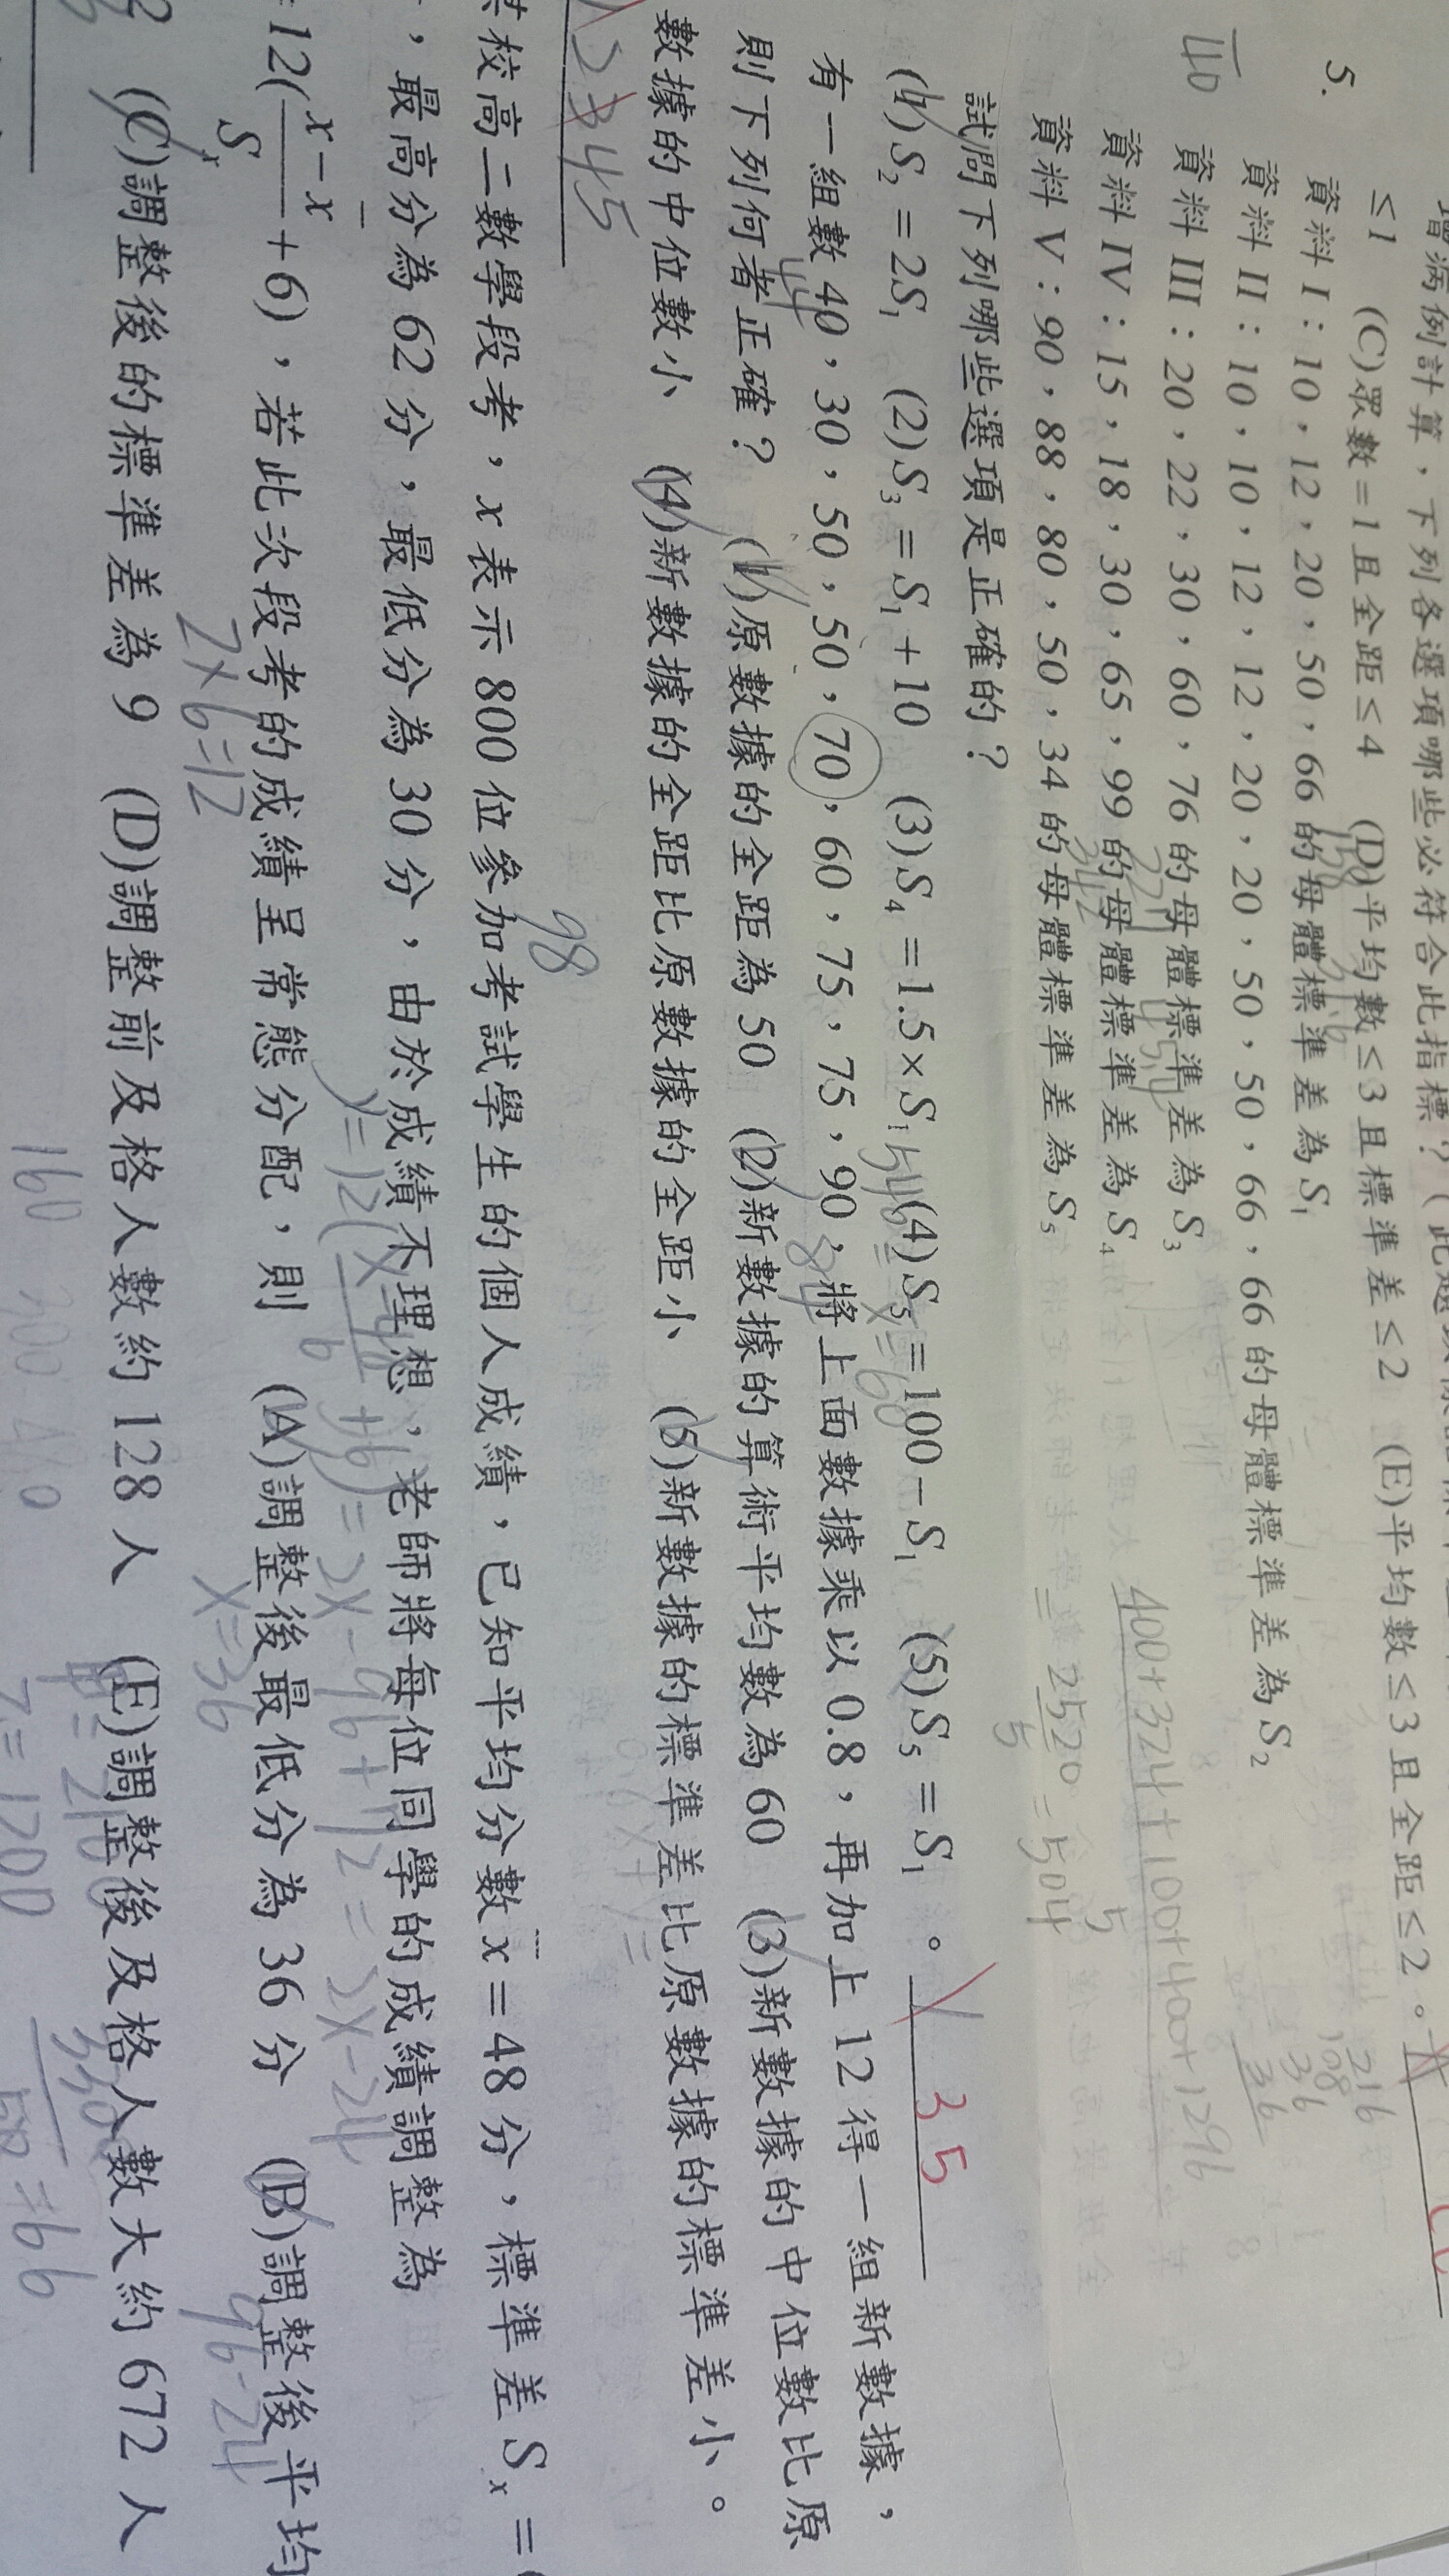 增病例計算,下列各選項哪些必符合此指標?(此
≤1 (C)眾數=1且全距≤4 (D)平均數≤3且標準差≤2 (E)平均數≤3且全距≤2。
5. 資料I:10,12,20,50,66的母體標準差為S₁
資料II:10,10,12,12,20,20,50,50,66,66的母體標準差為S₂
資料III:20,22,30,60,76的母體標準差為S₃
資料IV:15,18,30,65,99的母體標準差為S₄
資料V:90,88,80,50,34的母體標準差為S₅
試問下列哪些選項是正確的?
(1)S₂=2S₁ (2)S₃=S₁+10 (3)S₄=1.5×S₁ (4)S₅=100-S₁ (5)S₅=S₁。 35
有一組數40,30,50,50,70,60,75,75,90,將上面數據乘以0.8,再加上12得一組新數據,
則下列何者正確? (1)原數據的全距為50 (2)新數據的算術平均數為60 (3)新數據的中位數比原
數據的中位數小 (4)新數據的全距比原數據的全距小 (5)新數據的標準差比原數據的標準差小。
2345
某校高二數學段考,x表示800位參加考試學生的個人成績,已知平均分數x̄=48分,標準差Sₓ=
,最高分為62分,最低分為30分,由於成績不理想,老師將每位同學的成績調整為
12(\frac{x-x̄}{Sₓ}+6),若此次段考的成績呈常態分配,則 (A)調整後最低分為36分 (B)調整後平均
(C)調整後的標準差為9 (D)調整前及格人數約128人 (E)調整後及格人數大約672人
40
400+324+100+400+1296
5
=2520=504
5
216
108
36
36
98
2×6=12
x=36
96-24
160